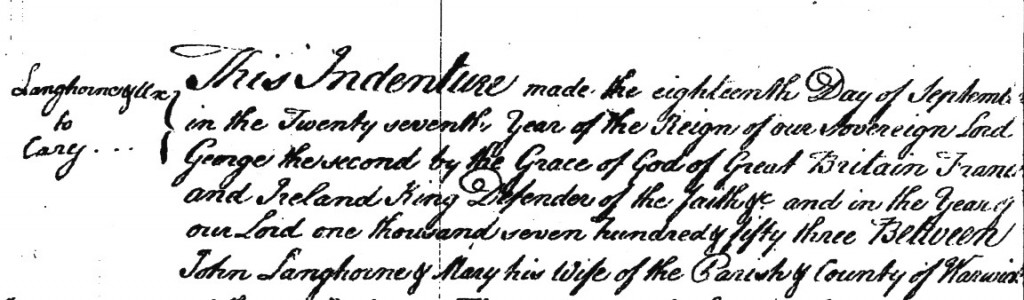 Langhorne & Ux
to
Cary ....
This Indenture made the eighteenth Day of Septemb
in the Twenty seventh Year of the Reign of our Sovereign Lord
George the second by the Grace of God of Great Britain Franc
and Ireland King Defender of the faith &c and in the Year of
our Lord one thousand seven hundred & fifty three Between
John Langhorne & Mary his Wife of the Parish & County of Warwick